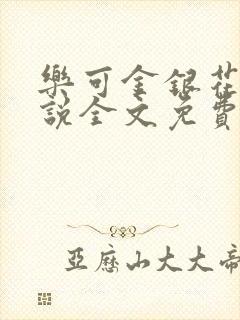 樂可金銀花
說全文免費
亞歷山大大帝